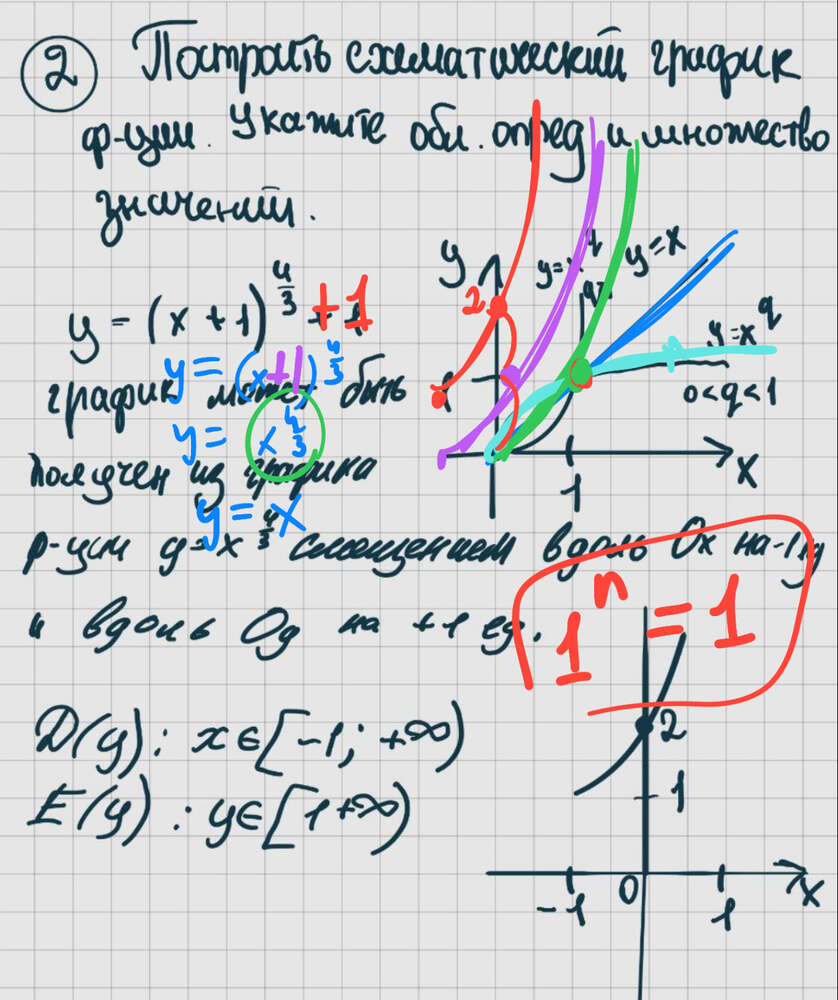 2 Построить схематический график
ф-ции. Укажите обл. опред и множество
значений.
y = (x + 1)^4/3 + 1
y = (x+1)^4/3
график может быть
y = x^4/3
получен из графика
y = x
ф-ции y = x^4/3 смещением вдоль Ox на -1 ед
и вдоль Oy на +1 ед.
D(y): x∈[-1; +∞)
E(y): y∈[1 +∞)
y
2
y=x^q
y=x
y=x^q
0<q<1
1
x
1^n = 1
2
1
-1 0 1 x